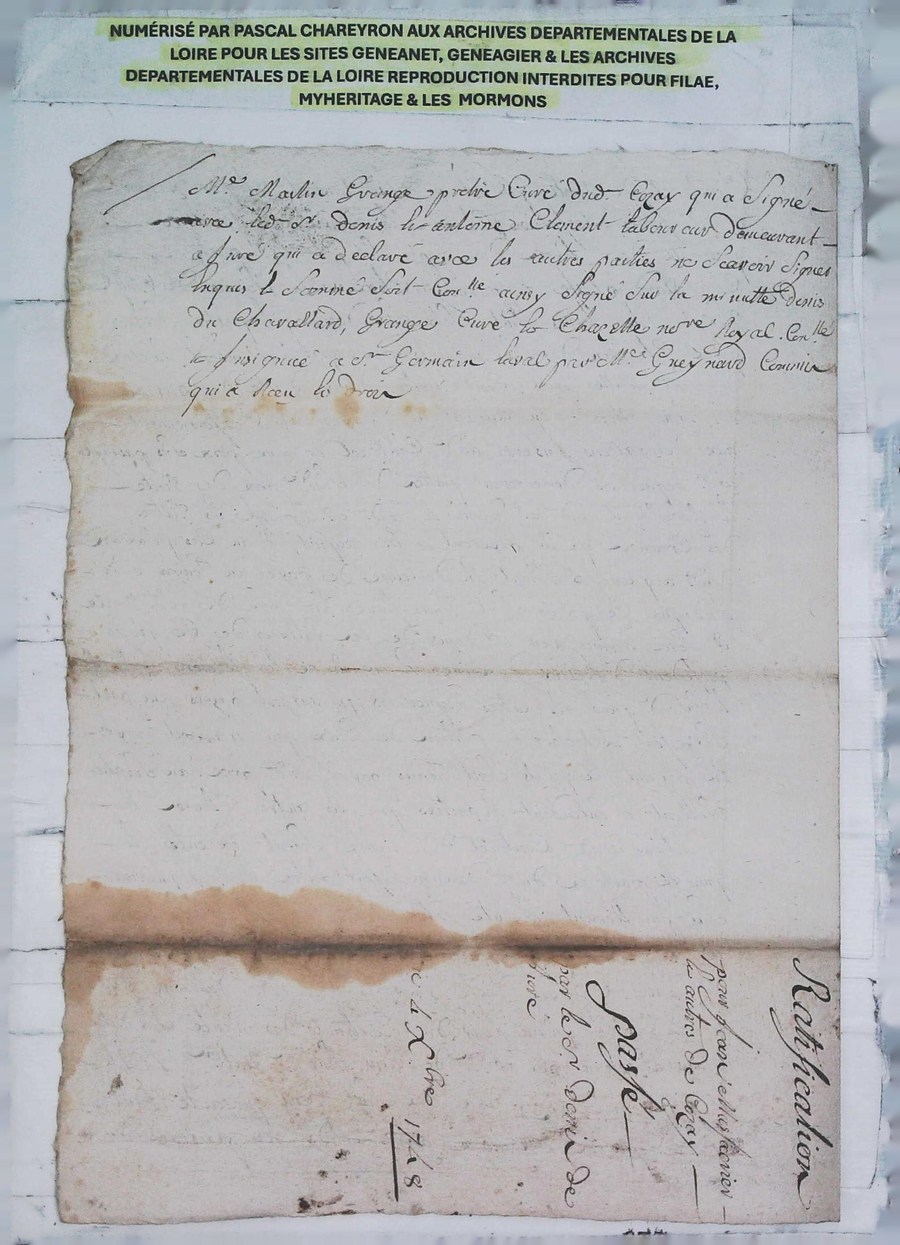 NUMÉRISÉ PAR PASCAL CHAREYRON AUX ARCHIVES DEPARTEMENTALES DE LA
LOIRE POUR LES SITES GENEANET, GENEAGIER & LES ARCHIVES
DEPARTEMENTALES DE LA LOIRE REPRODUCTION INTERDITES POUR FILAE,
MYHERITAGE & LES MORMONS
Mre Martin Grange prêtre Curé dud. Cezay qui a Signé
avec led. Sr denis & antoine Clement laboureur demeurant
a Juré qui a declaré avec les autres parties ne Scavoir Signer
Enquis & Sommé Soit Conlle ainsy Signé Sur la minutte denis
du Chavallard, Grange Curé & Chazelle nore Royal. Conllé
& Insignué a St Germain laval par Mre Gueynard Commis
qui a Receu le droit
Ratification
pour jean
& autres de Cezay
passé
par le Sr denis de
Juré
Le 4 Xbre 1748